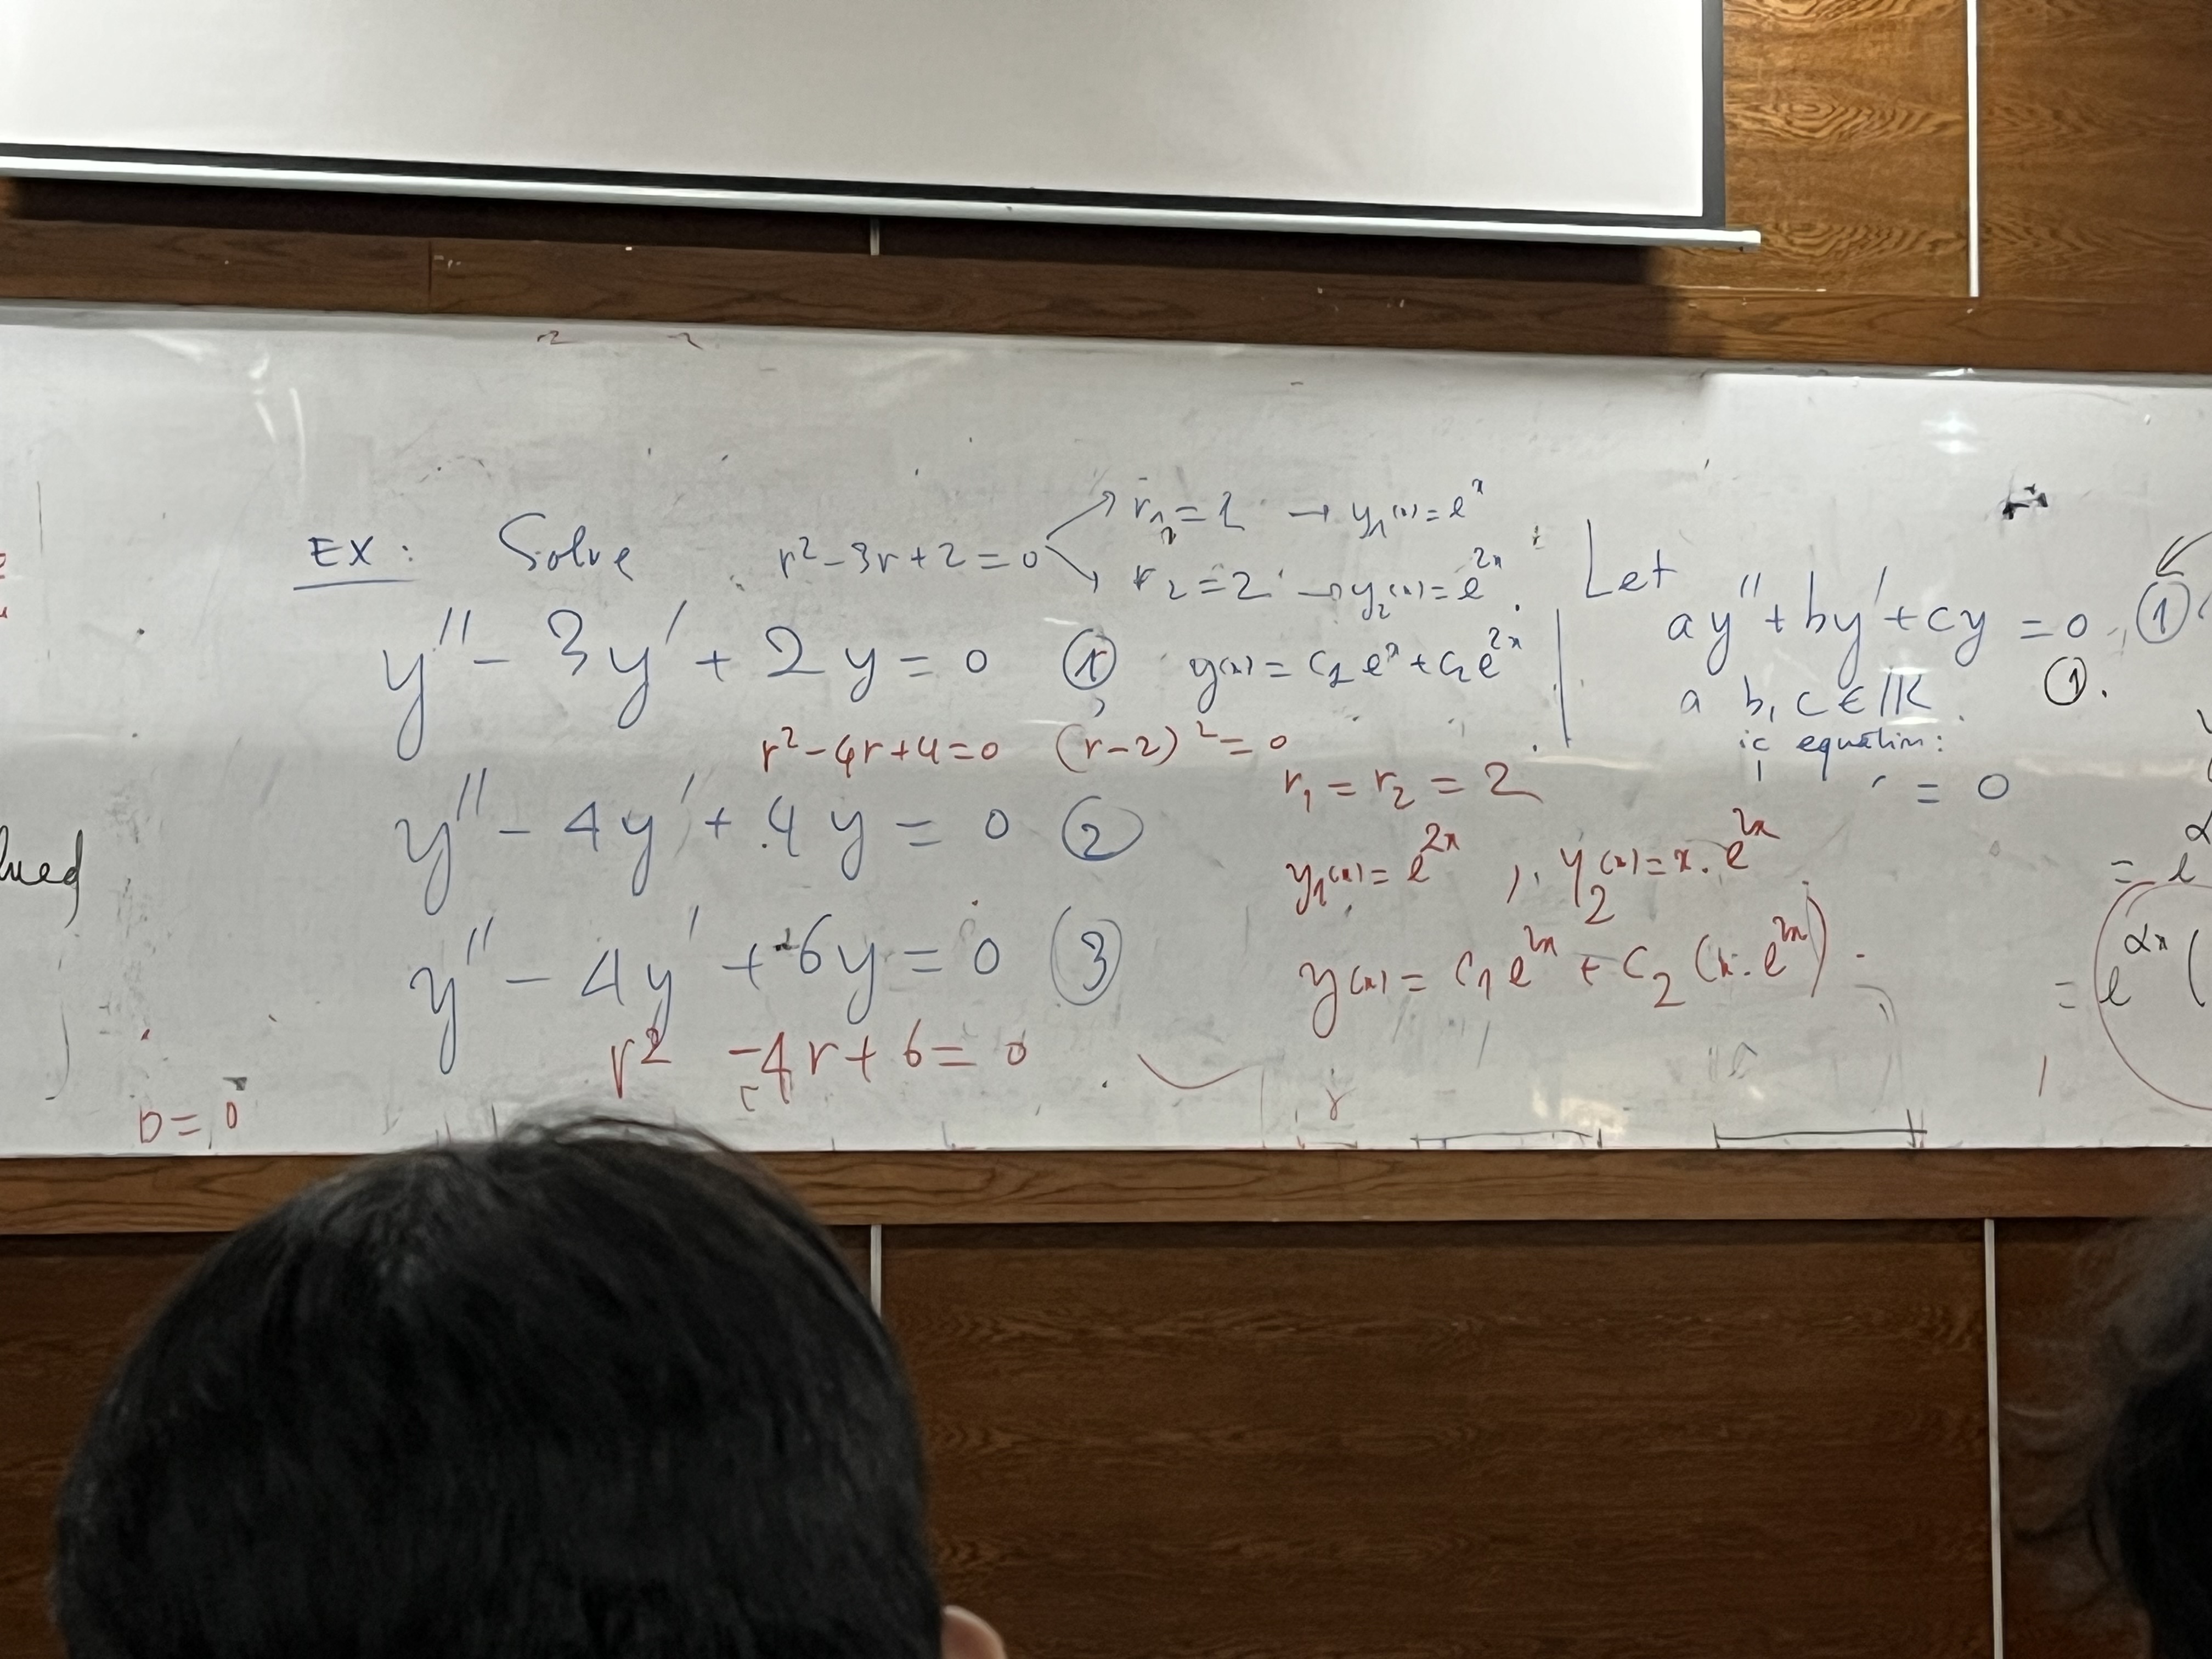 EX: Solve r² - 3r + 2 = 0
r₁ = 1 → y₁(x) = eˣ
r₂ = 2 → y₂(x) = e²ˣ
y'' - 3y' + 2y = 0 ① y(x) = C₁eˣ + C₂e²ˣ
r² - 4r + 4 = 0 (r-2)² = 0
r₁ = r₂ = 2
y'' - 4y' + 4y = 0 ②
y₁(x) = e²ˣ, y₂(x) = x.e²ˣ
y'' - 4y' + 6y = 0 ③
y(x) = C₁e²ˣ + C₂(x.e²ˣ).
r² - 4r + 6 = 0
Let
ay'' + by' + cy = 0, ①
a b, c ∈ ℝ ①.
ic equation:
= 0
= e
= e^αx (
lued
D = 0